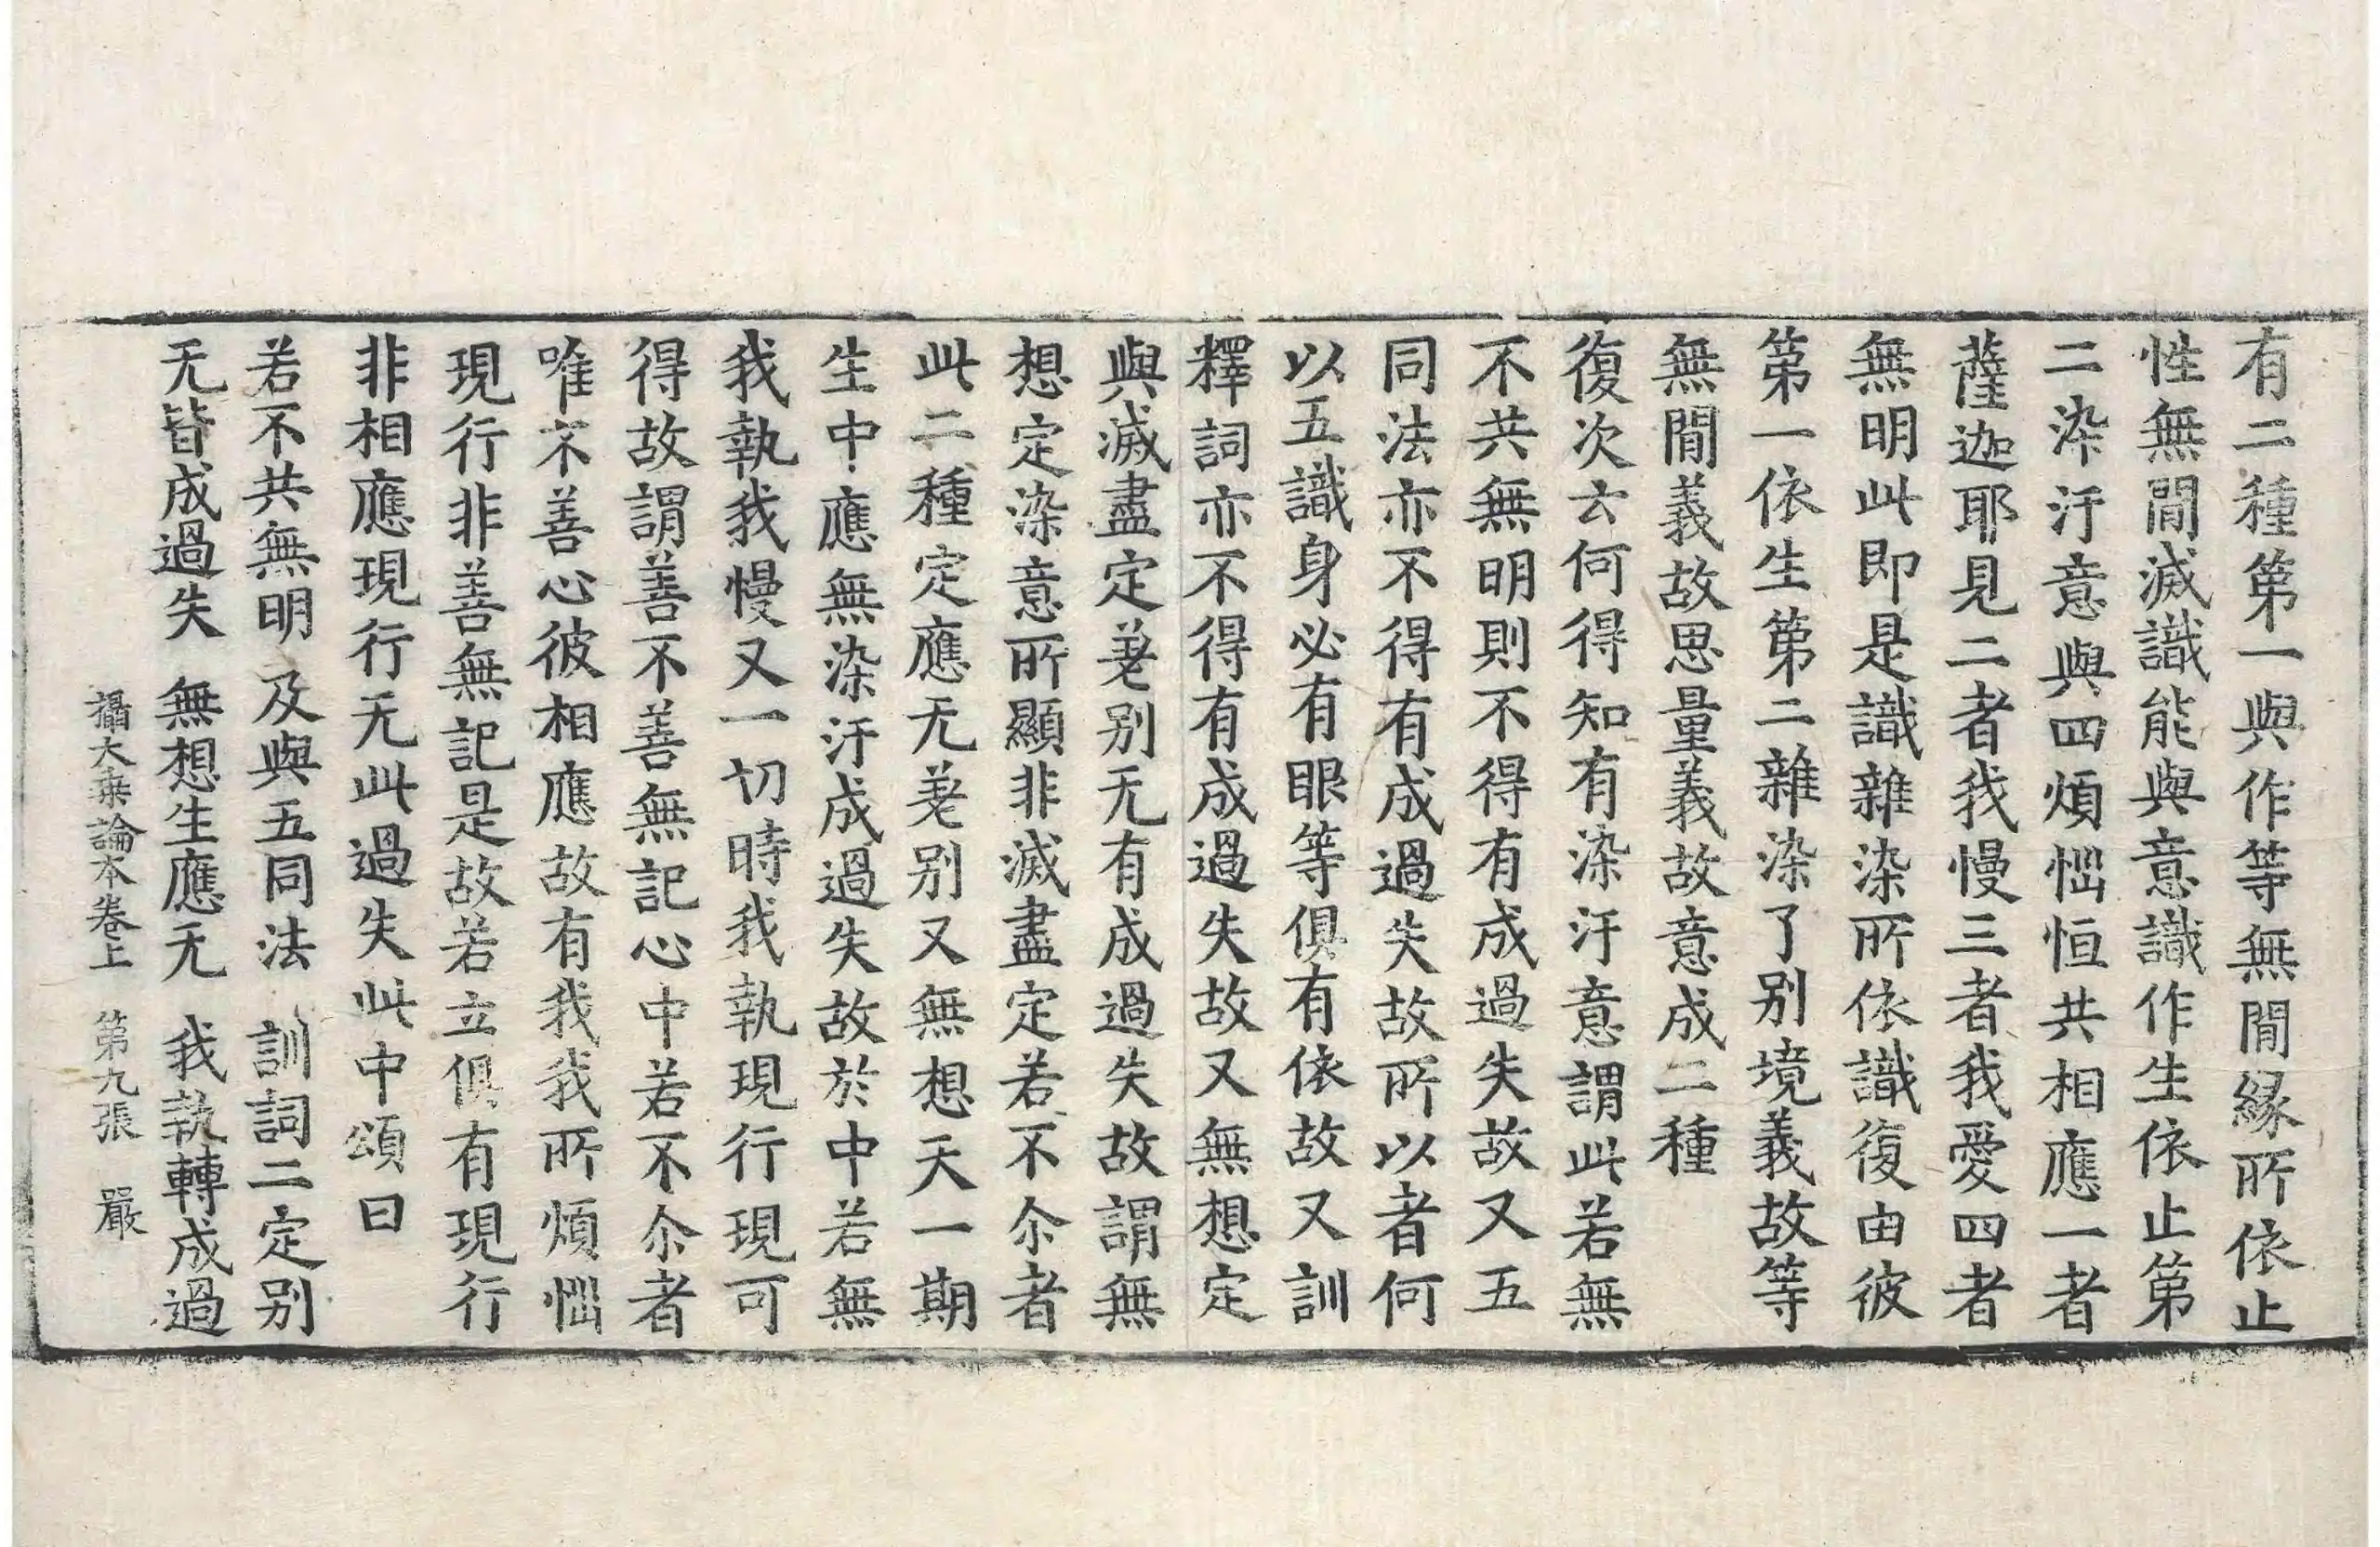 有二種第一與作等無間縁所依止
性無間滅識能與意識作生依止第
二染汙意與四煩惱恒共相應一者
薩迦耶見二者我慢三者我愛四者
無明此即是識雜染所依識復由彼
第一依生第二雜染了別境義故等
無間義故思量義故意成二種
復次云何得知有染汙意謂此若無
不共無明則不得有成過失故又五
同法亦不得有成過失故所以者何
以五識身必有眼等俱有依故又訓
釋詞亦不得有成過失故又無想定
與滅盡定差别无有成過失故謂無
想定染意所顯非滅盡定若不尒者
此二種定應无差别又無想天一期
生中應無染汙成過失故於中若無
我執我慢又一切時我執現行現可
得故謂善不善無記心中若不尒者
唯不善心彼相應故有我我所煩惱
現行非善無記是故若立俱有現行
非相應現行无此過失此中頌曰
若不共無明　及與五同法　訓詞二定别
无皆成過失　無想生應无　我執轉成過
攝大乗論本卷上　第九張　嚴